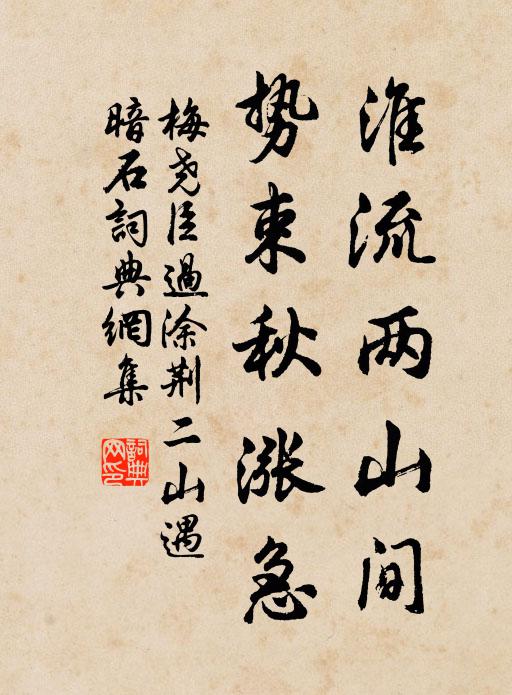 淮流两山间
势束秋漲急
梅尧臣過涂荆二山遇
暗石詞典網集
詞典
网印